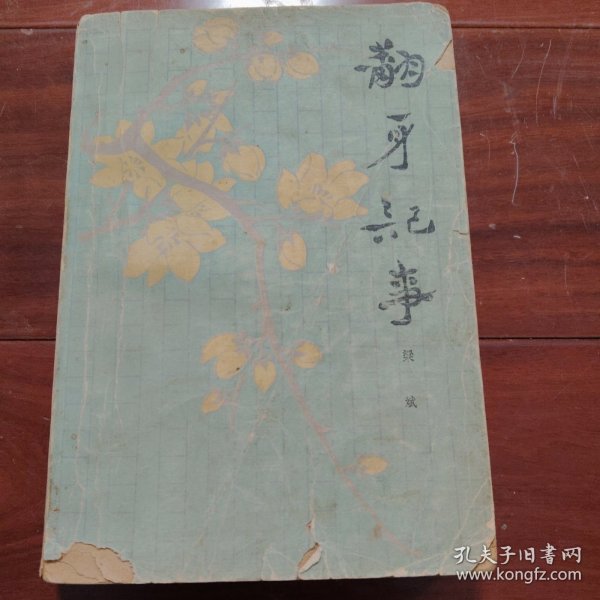 翻身记事
梁斌
孔夫子旧書网
www.kongfz.com